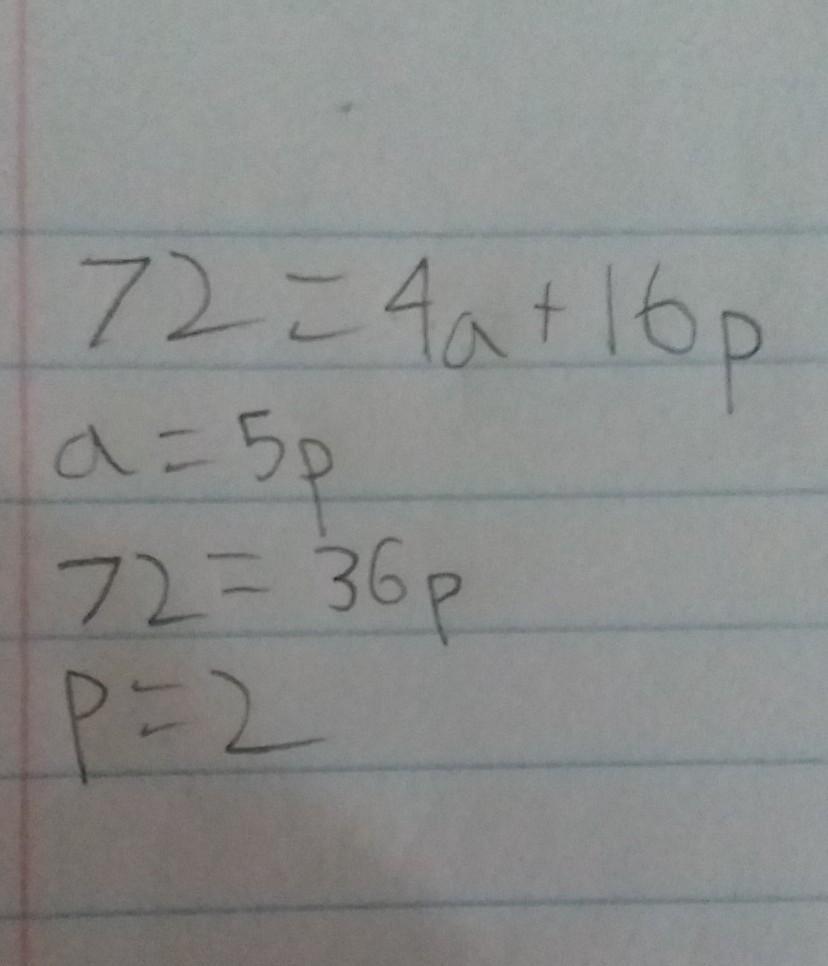 72 = 4a + 16p
a = 5p
72 = 36p
p = 2